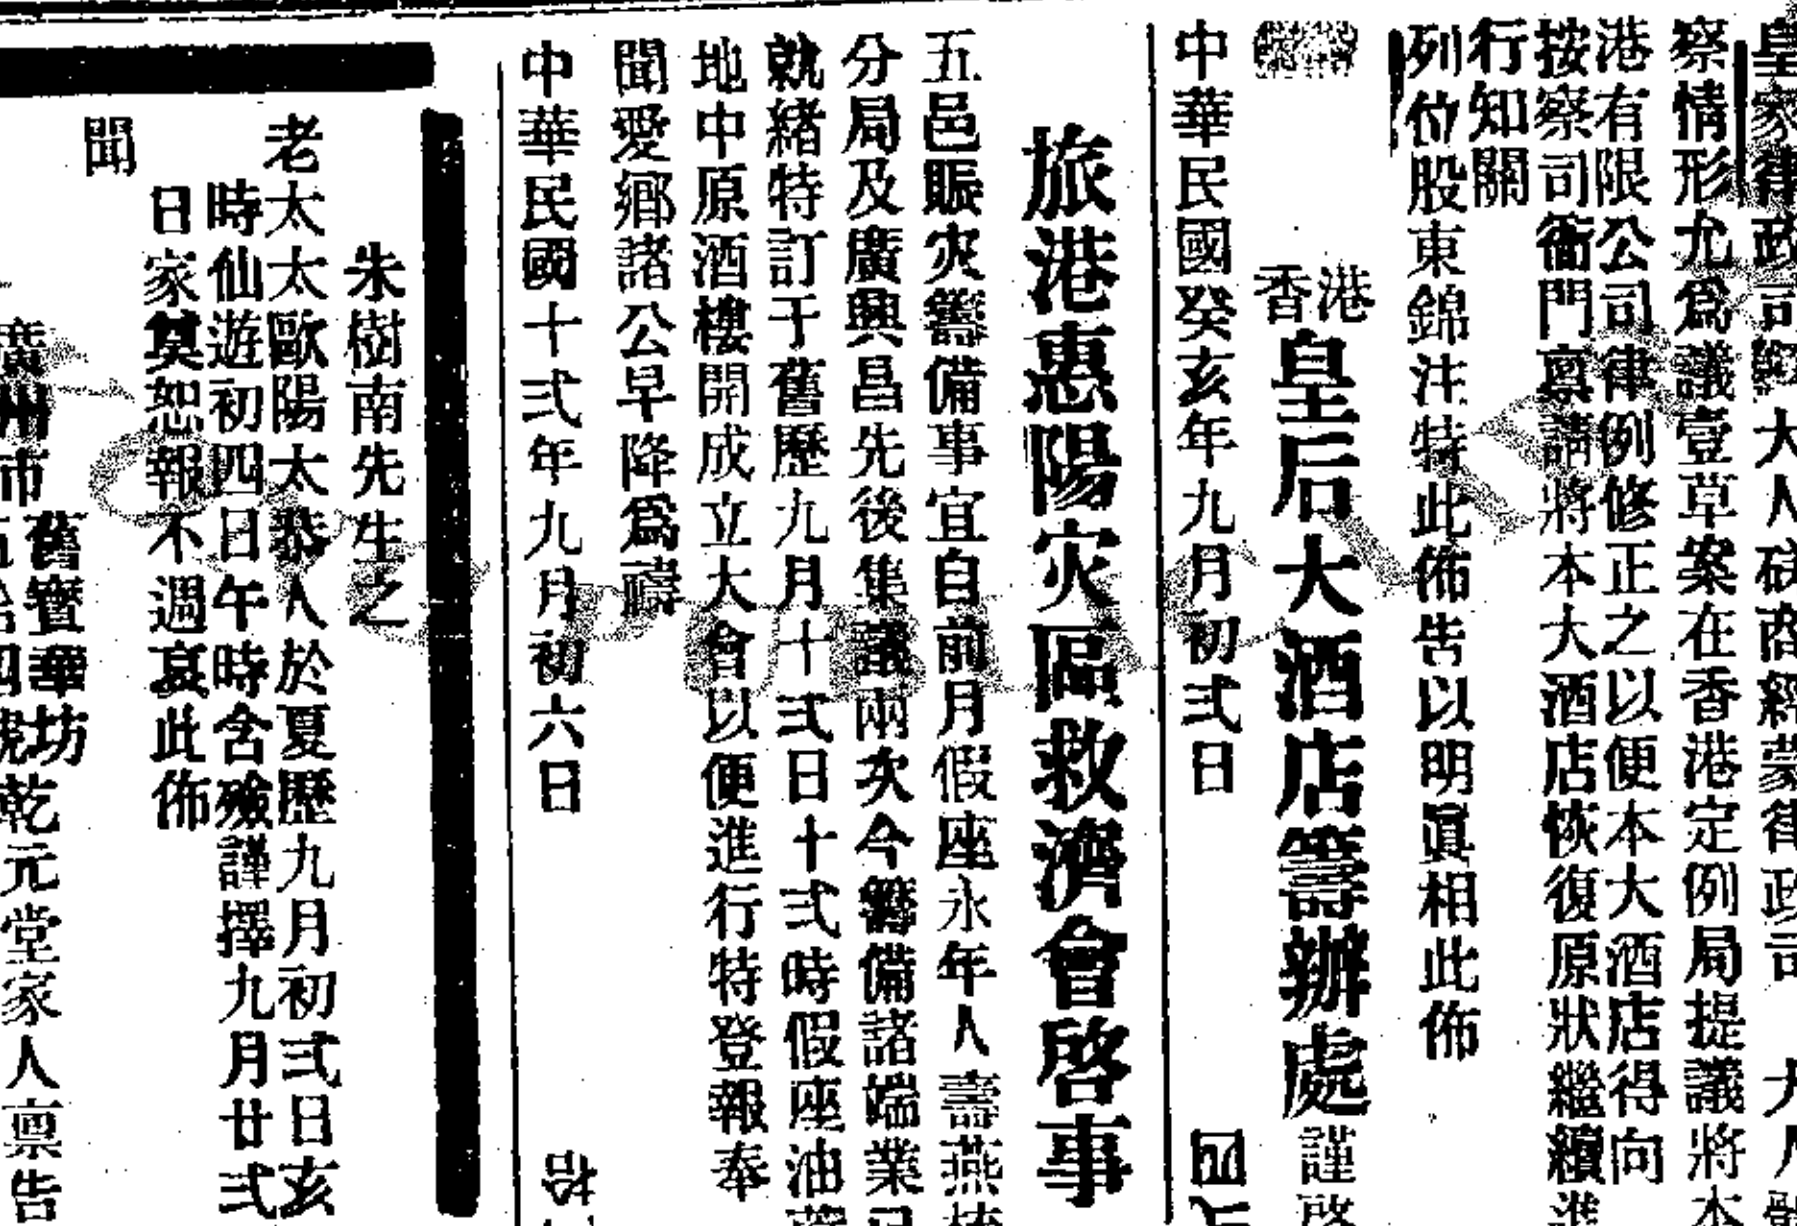 皇家律政司 大人 商經蒙律政司 大人
察情形尤爲議壹草案在香港定例局提議將本
港有限公司律例修正之以便本大酒店得向
按察司衙門禀請將本大酒店恢復原狀繼續進
行知關
列位股東錦注特此佈告以明眞相此佈
香港皇后大酒店籌辦處謹啓
中華民國癸亥年九月初弍日
旅港惠陽灾區救濟會啓事
五邑賑灾籌備事宜自前月假座永年人壽燕梳
分局及廣興昌先後集議兩次今籌備諸端業已
就緒特訂于舊歷九月十弍日十弍時假座油蔴
地中原酒樓開成立大會以便進行特登報奉
聞愛鄉諸公早降爲禱
中華民國十弍年九月初六日
朱樹南先生之
老太太歐陽太恭人於夏歷九月初弍日亥
時仙遊初四日午時含殮謹擇九月廿弍
日家奠恕報不週哀此佈
聞
廣州市舊寶華坊
四號乾元堂家人禀告